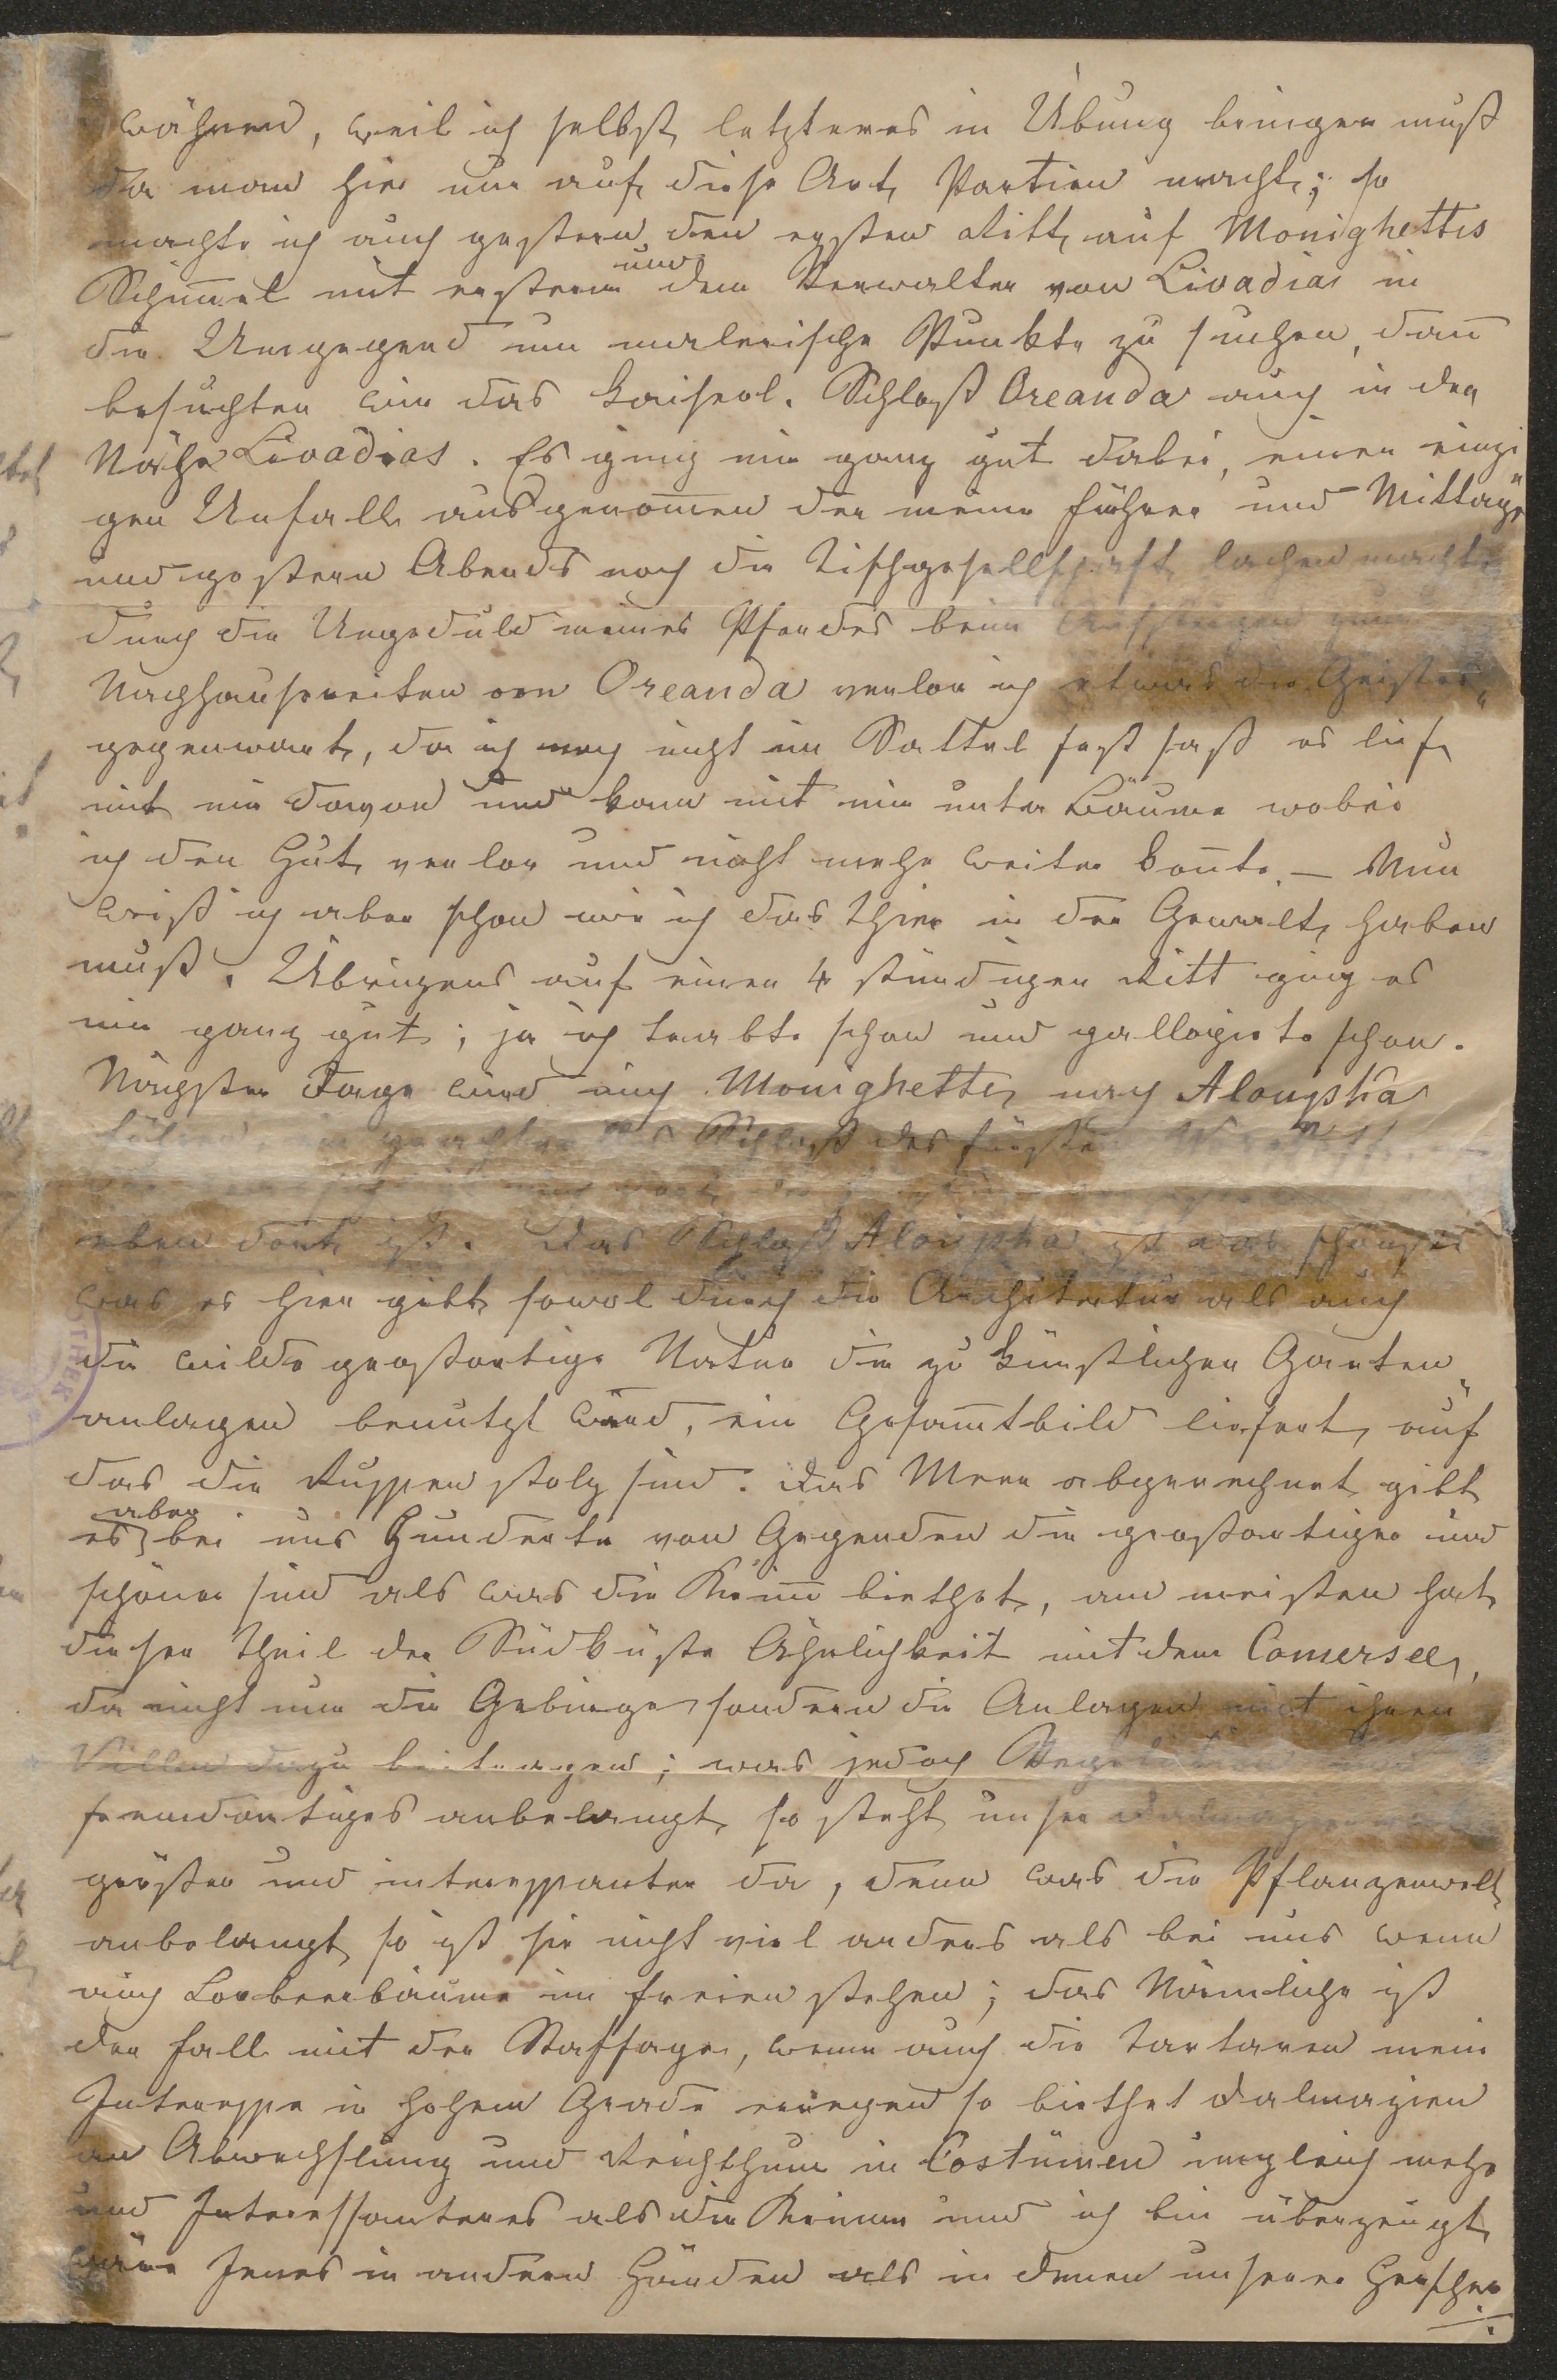 währen, weil ich selbst letzteres in Übung bringen muß
da man hier nur auf diese Art Partien macht; so
machte ich auch gestern den ersten Ritt auf Monighettis
Schimmel mit ersterem und dem Verwalter von Livadia in
die Umgegend um malerische Punkte zu suchen, dan̄
besuchten wir das kaiserl. Schloß Oreanda auch in der
Nähe Livadias. Es ging mir ganz gut dabei, einen einzi
gen Unfall ausgenom̄en der meine Führer und Mittags
und gestern Abends noch die Tischgesellschaft lachen machte
durch die Ungeduld meines Pferdes beim Aufsteigen zum
Nachhausereiten von Oreanda verlor ich etwas die Geistes„
gegenwart, da ich noch nicht im Sattel fest saß es lief
mit mir davon und kam mit mir unter Bäume wobei
ich den Hut verlor und nicht mehr weiter kon̄te. – Nun
weiß ich aber schon wie ich das Thier in der Gewalt haben
muß. Übrigens auf einen 4 stündigen Ritt ging es
mir ganz gut; ja ich trabte schon und gallopirte schon.
Nächster Tage wird mich Monighetti nach Aloupka
führen das Schloß des Fürsten
eben dort ist. Das Schloß Aloupka ist das schönste
was es hier gibt sowol durch die Architectur als auch
die wilde großartige Natur die zu künstlichen Garten„
anlagen benutzt wird, ein Gesam̄tbild liefert, auf
das die Russen stolz sind. Das Meer abgerechnet gibt
es aber bei uns Hunderte von Gegenden die großartiger und
schöner sind als was die Krim̄ biethet, am meisten hat
dieser Theil der Südküste Ähnlichkeit mit dem Comersee,
da nicht nur die Gebirge sondern die Anlagen mit ihren
Villen dazu beitragen; was jedoch Vegetation und
fremdartiges anbelangt, so steht unser Dalmazien weit
größer und interessanter da, denn was die Pflanzenwelt
anbelangt so ist sie nicht viel anders als bei uns wenn
auch Lorbeerbäume im freien stehen; das Nämliche ist
der Fall mit der Staffage, wenn auch die Tartaren mein
Interesse in hohem Grade erregen so biethet Dalmazien
an Abwechslung und Reichthum in Costümen ungleich mehr
und Interessanteres als die Krimm und ich bin überzeugt,
wäre Jenes in andern Händen als in denen unserer Herscher